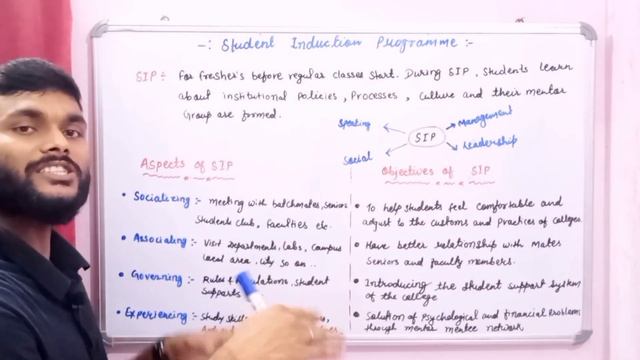 -: Student Induction Programme :-
SIP :- For fresher's before regular classes start. During SIP, Students learn
about institutional Policies, Processes, Culture and their mentor
Group are formed.
Sporting
Management
SIP
Social
Leadership
Aspects of SIP
• Socializing :- Meeting with batchmates, Seniors
Students Club, Faculties etc.
• Associating :- Visit Departments, Labs, Campus
Local area, City so on ..
• Governing :- Rules & Regulations, Student
Supports
• Experiencing :- Study Skills
Objectives of SIP
• To help students feel comfortable and
adjust to the customs and Practices of colleges
• Have better relationship with mates
Seniors and faculty members.
• Introducing the student support system
of the college
• Solution of Psychological and financial Problems
through mentor mentee network